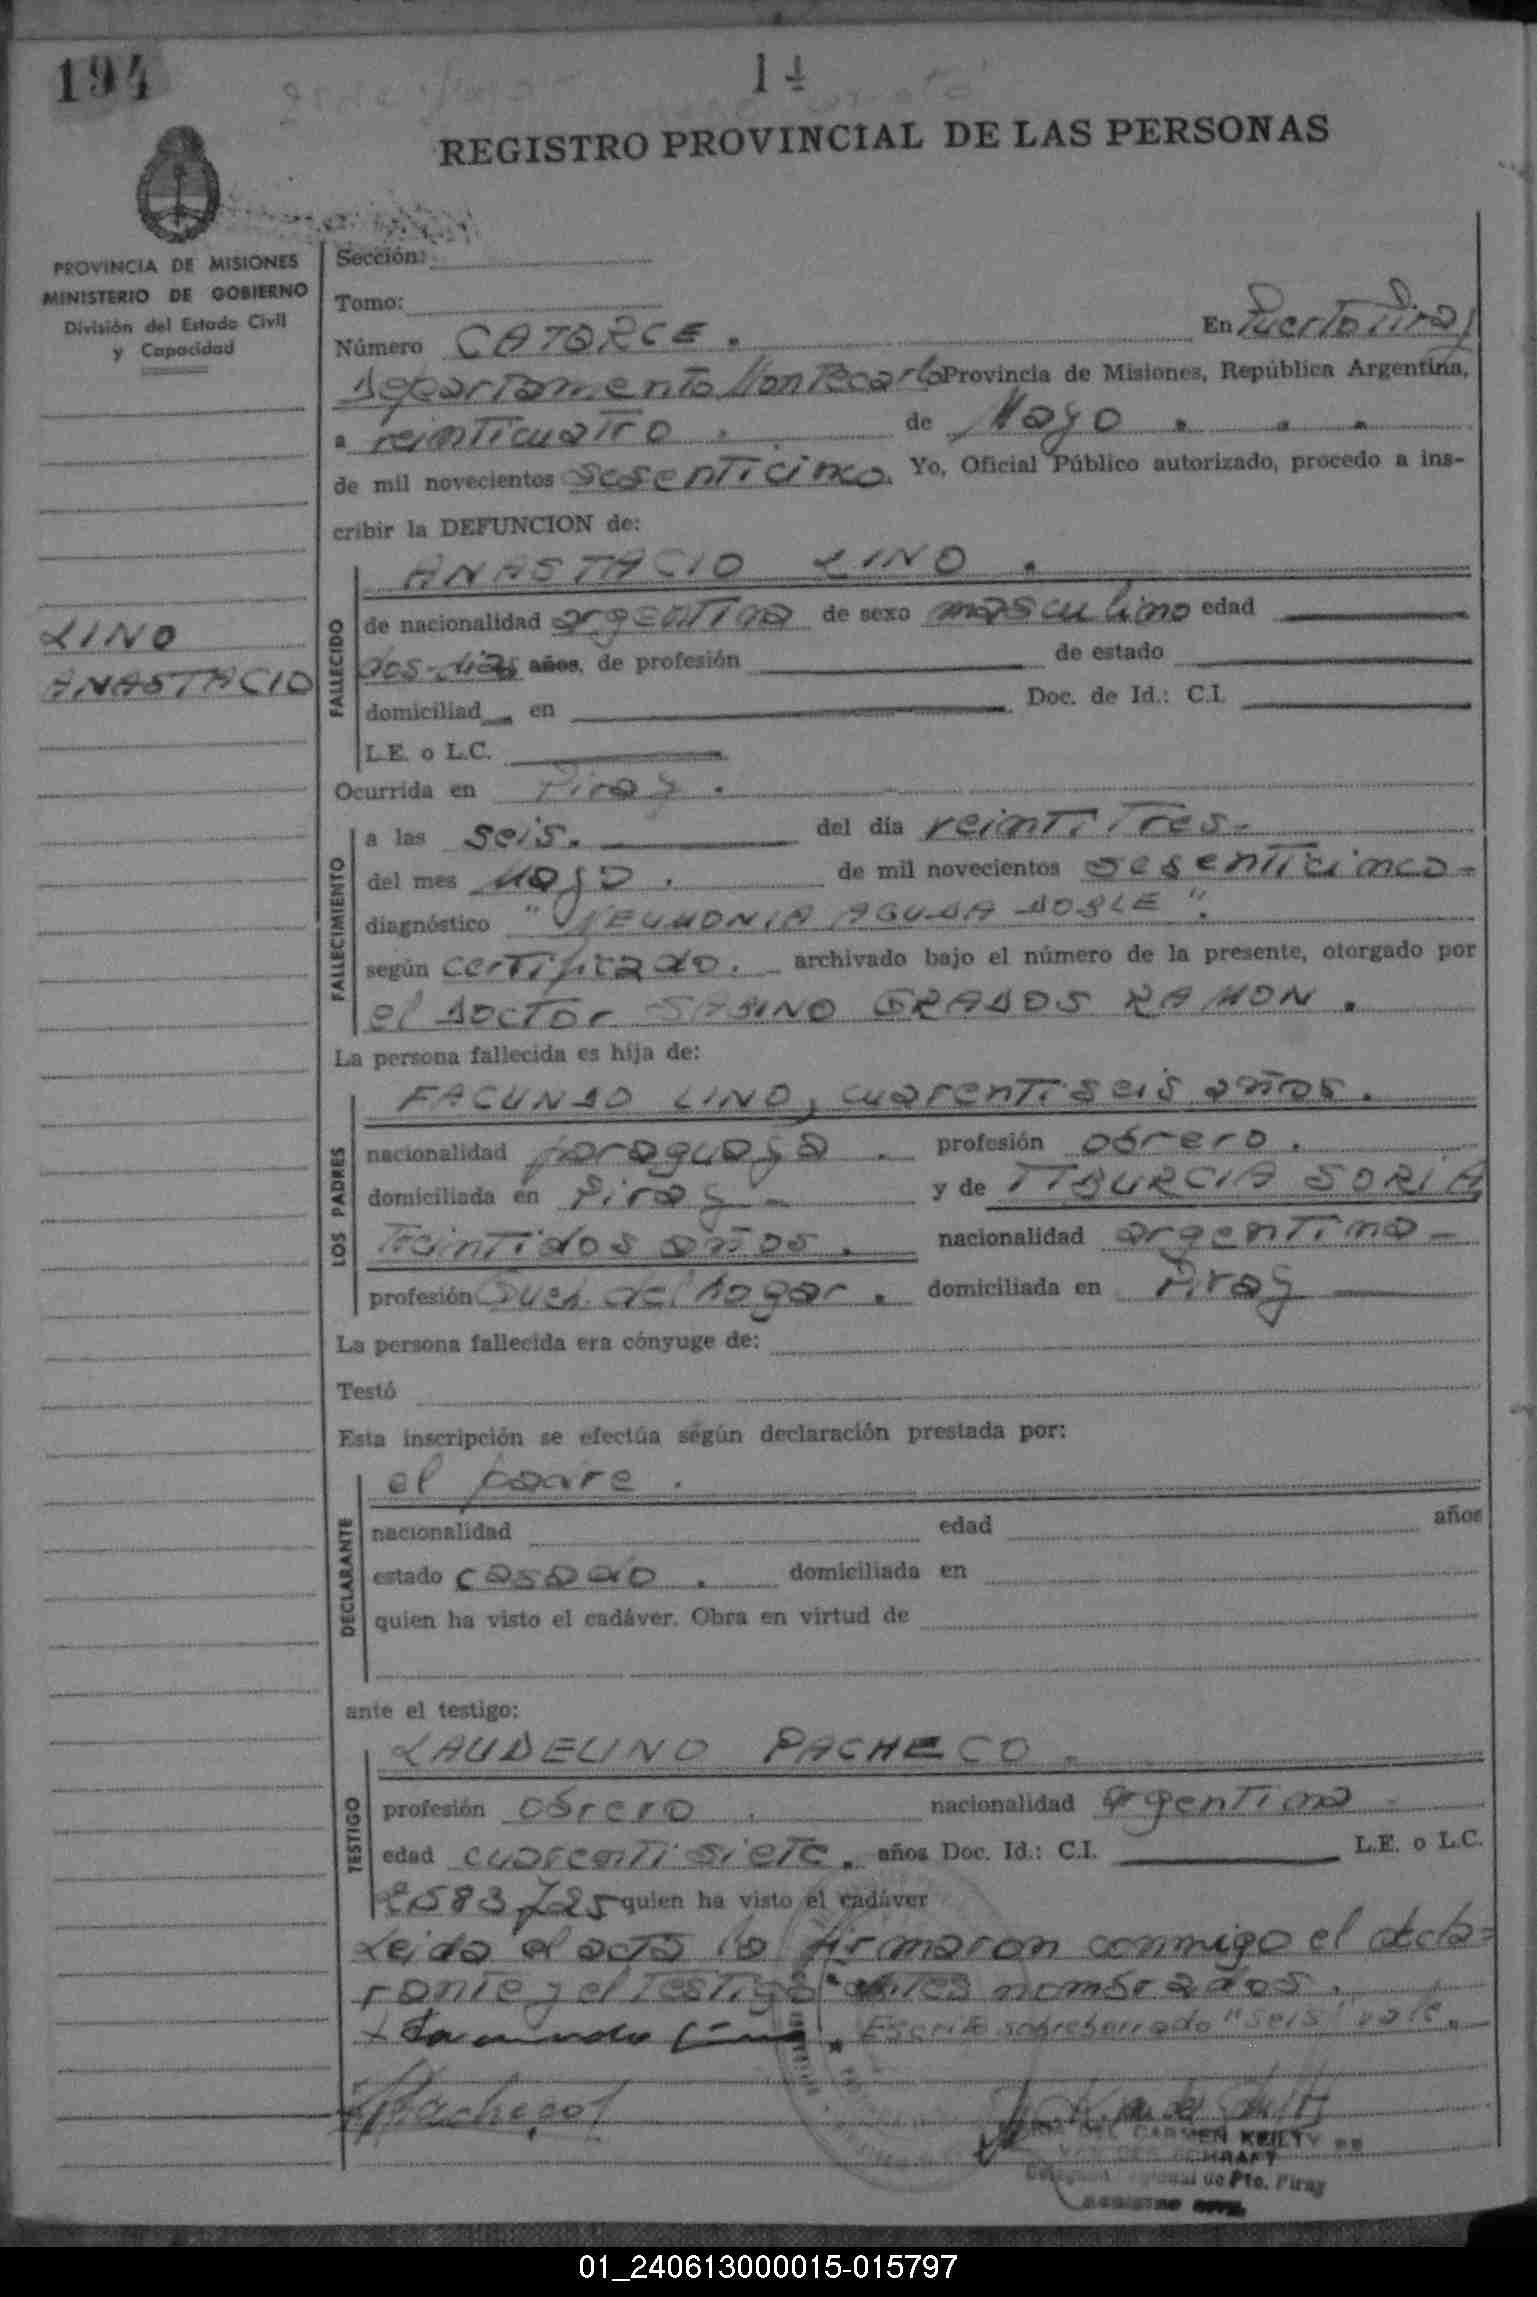 194
14
REGISTRO PROVINCIAL DE LAS PERSONAS
PROVINCIA DE MISIONES
MINISTERIO DE GOBIERNO
División del Estado Civil
y Capacidad
LINO
ANASTACIO
Sección:
Tomo:
Número CATORCE. En Puerto Piray
Departamento Montecarlo Provincia de Misiones, República Argentina,
a veinticuatro. de Mayo
de mil novecientos sesenticinco. Yo, Oficial Público autorizado, procedo a ins-
cribir la DEFUNCION de:
FALLECIDO
ANASTACIO LINO.
de nacionalidad argentina de sexo masculino edad
dos-días años, de profesión de estado
domiciliad en Doc. de Id.: C.I.
L.E. o L.C.
Ocurrida en Piray.
FALLECIMIENTO
a las seis. del día veintitres.
del mes Mayo. de mil novecientos sesenticinco-
diagnóstico "NEUMONIA AGUDA DOBLE".
según certificado. archivado bajo el número de la presente, otorgado por
el Doctor SABINO GRADOS RAMON.
La persona fallecida es hija de:
LOS PADRES
FACUNDO LINO, cuarentiseis años.
nacionalidad paraguaya. profesión obrero.
domiciliada en Piray- y de TIBURCIA SORIA
treintidos años. nacionalidad argentina-
profesión Queh. del hogar. domiciliada en Piray
La persona fallecida era cónyuge de:
Testó
Esta inscripción se efectúa según declaración prestada por:
DECLARANTE
el padre.
nacionalidad edad años
estado casado. domiciliada en
quien ha visto el cadáver. Obra en virtud de
ante el testigo:
TESTIGO
LAUDELINO PACHECO.
profesión obrero. nacionalidad argentina-
edad cuarentisiete. años Doc. Id.: C.I. L.E. o L.C.
2.583.725 quien ha visto el cadáver
Leida el acta la firmaron conmigo el decla=
rante y el Testigo antes nombrados.
Escrito sobreborrado "seis" vale.
Pacheco
DEL CARMEN
de Pto. Piray
01_240613000015-015797